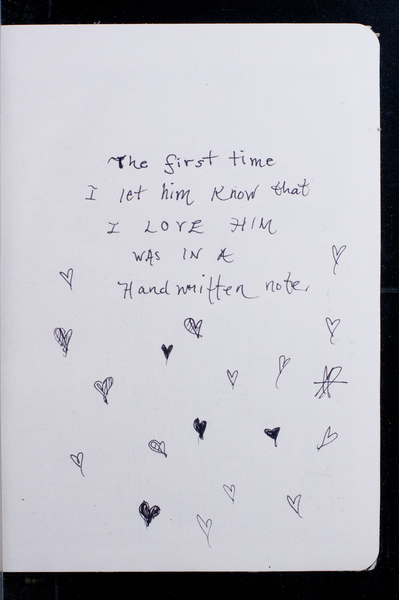 The first time
I let him know that
I LOVE HIM
WAS IN A
Handwritten note.